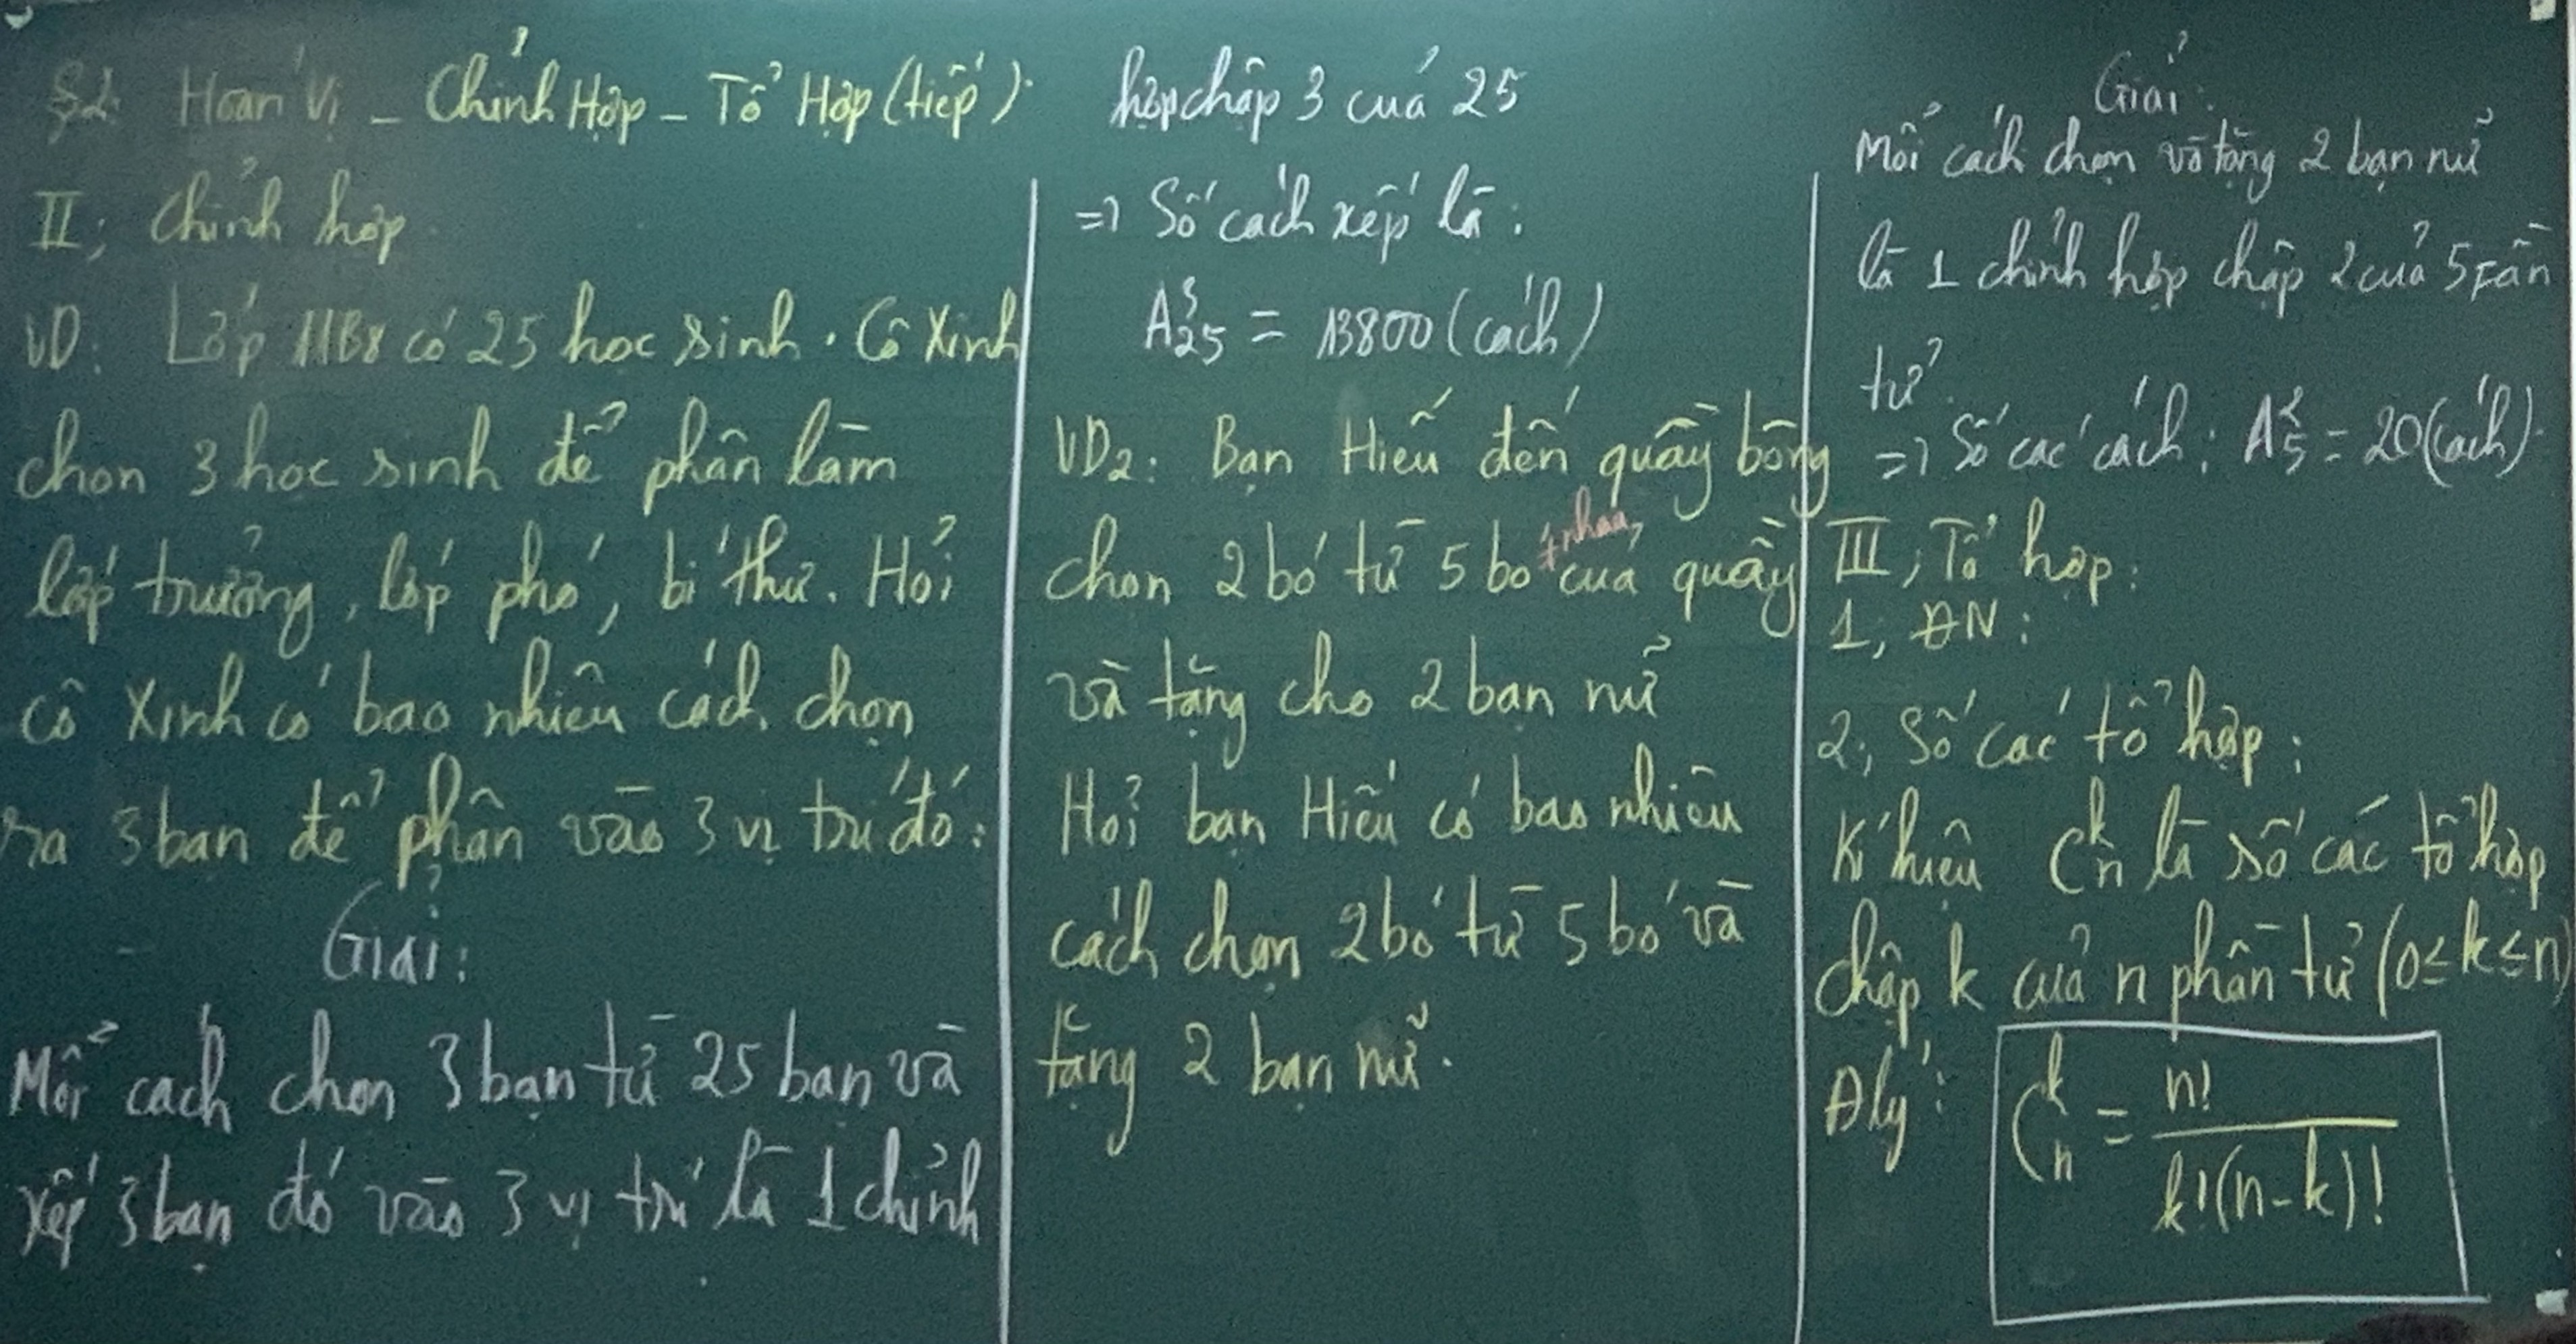 §2. Hoán Vị - Chỉnh Hợp - Tổ Hợp (tiếp).
II; Chỉnh hợp
VD: Lớp 11B8 có 25 học sinh. Cô Xinh
chọn 3 học sinh để phân làm
lớp trưởng, lớp phó, bí thư. Hỏi
cô Xinh có bao nhiêu cách chọn
ra 3 bạn để phân vào 3 vị trí đó:
Giải:
Mỗi cách chọn 3 bạn từ 25 bạn và
xếp 3 bạn đó vào 3 vị trí là 1 chỉnh
hợp chập 3 của 25
=> Số cách xếp là:
A³₂₅ = 13800 (cách)
VD2: Bạn Hiếu đến quầy bông
chọn 2 bó từ 5 bó ≠ nhau, của quầy
và tặng cho 2 bạn nữ
Hỏi bạn Hiếu có bao nhiêu
cách chọn 2 bó từ 5 bó và
tặng 2 bạn nữ.
Giải:
Mỗi cách chọn và tặng 2 bạn nữ
là 1 chỉnh hợp chập 2 của 5 fần
tử.
=> Số các cách: A²₅ = 20 (cách).
III; Tổ hợp:
1; ĐN:
2; Số các tổ hợp:
Kí hiệu Cᵏₙ là số các tổ hợp
chập k của n phần tử (0≤k≤n)
Đlý: Cᵏₙ = n! / k!(n-k)!